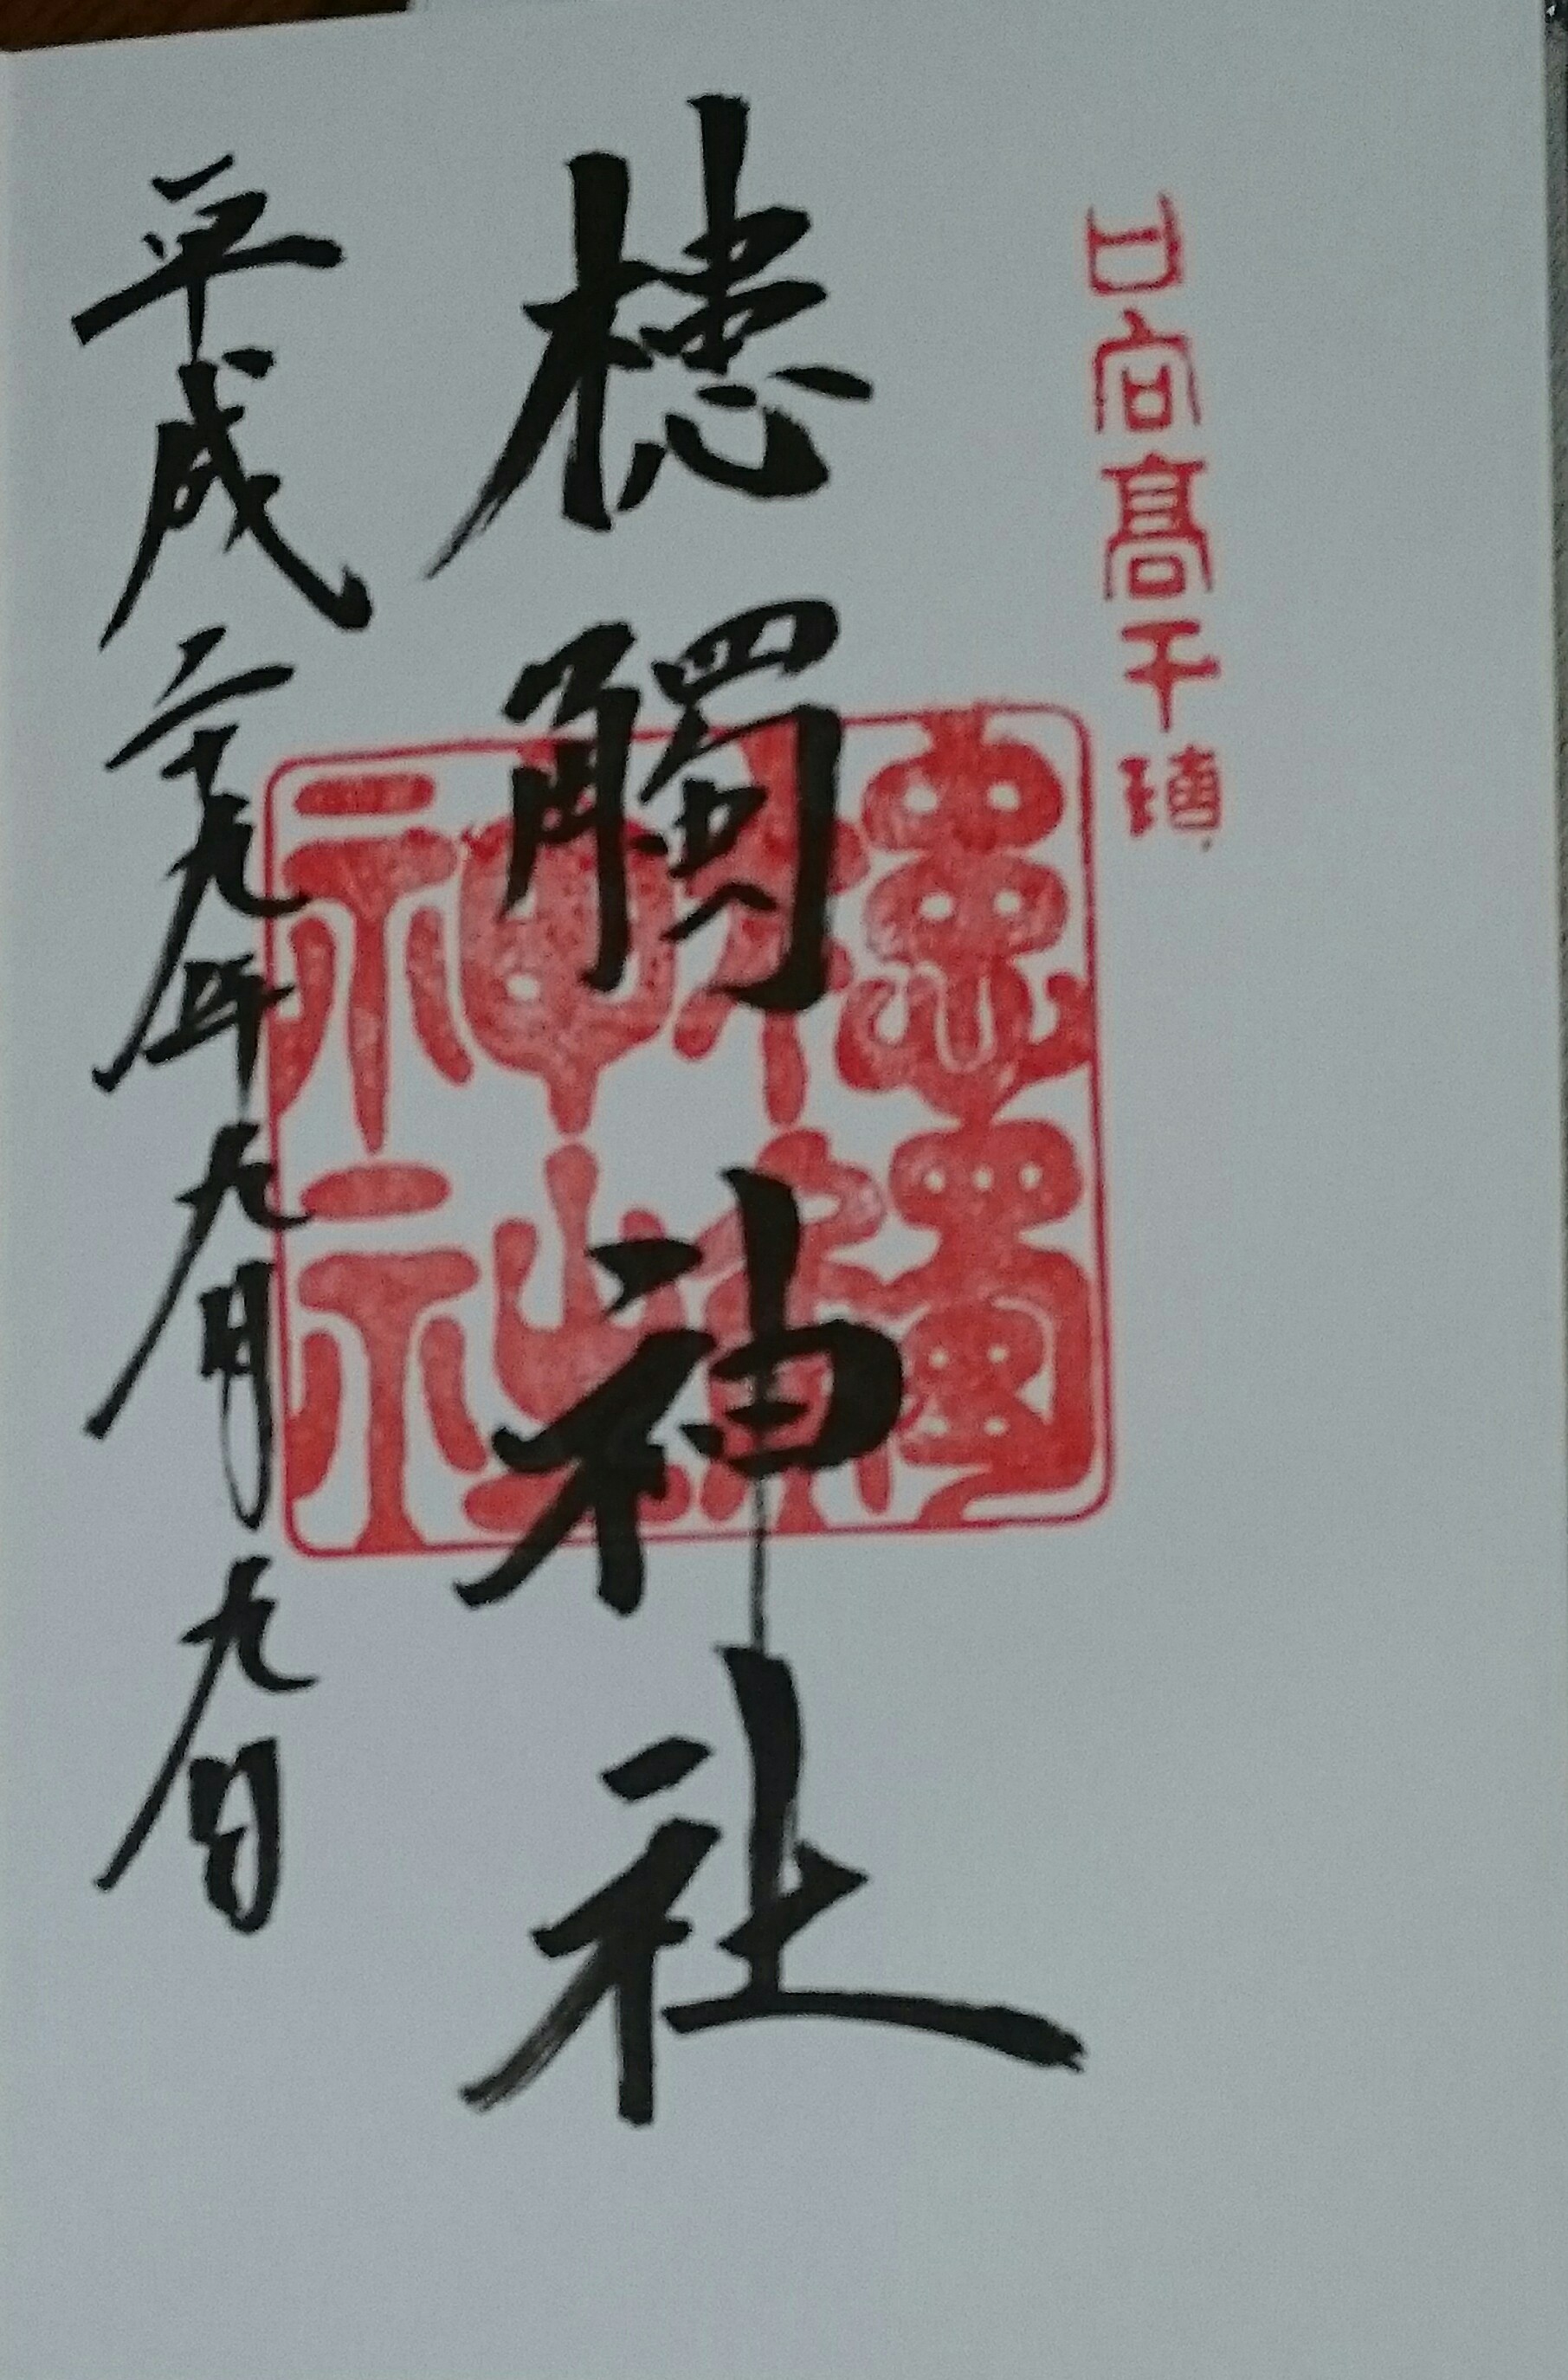 日向髙千穂
槵觸神社
槵觸
神社
平成二十九年九月九日